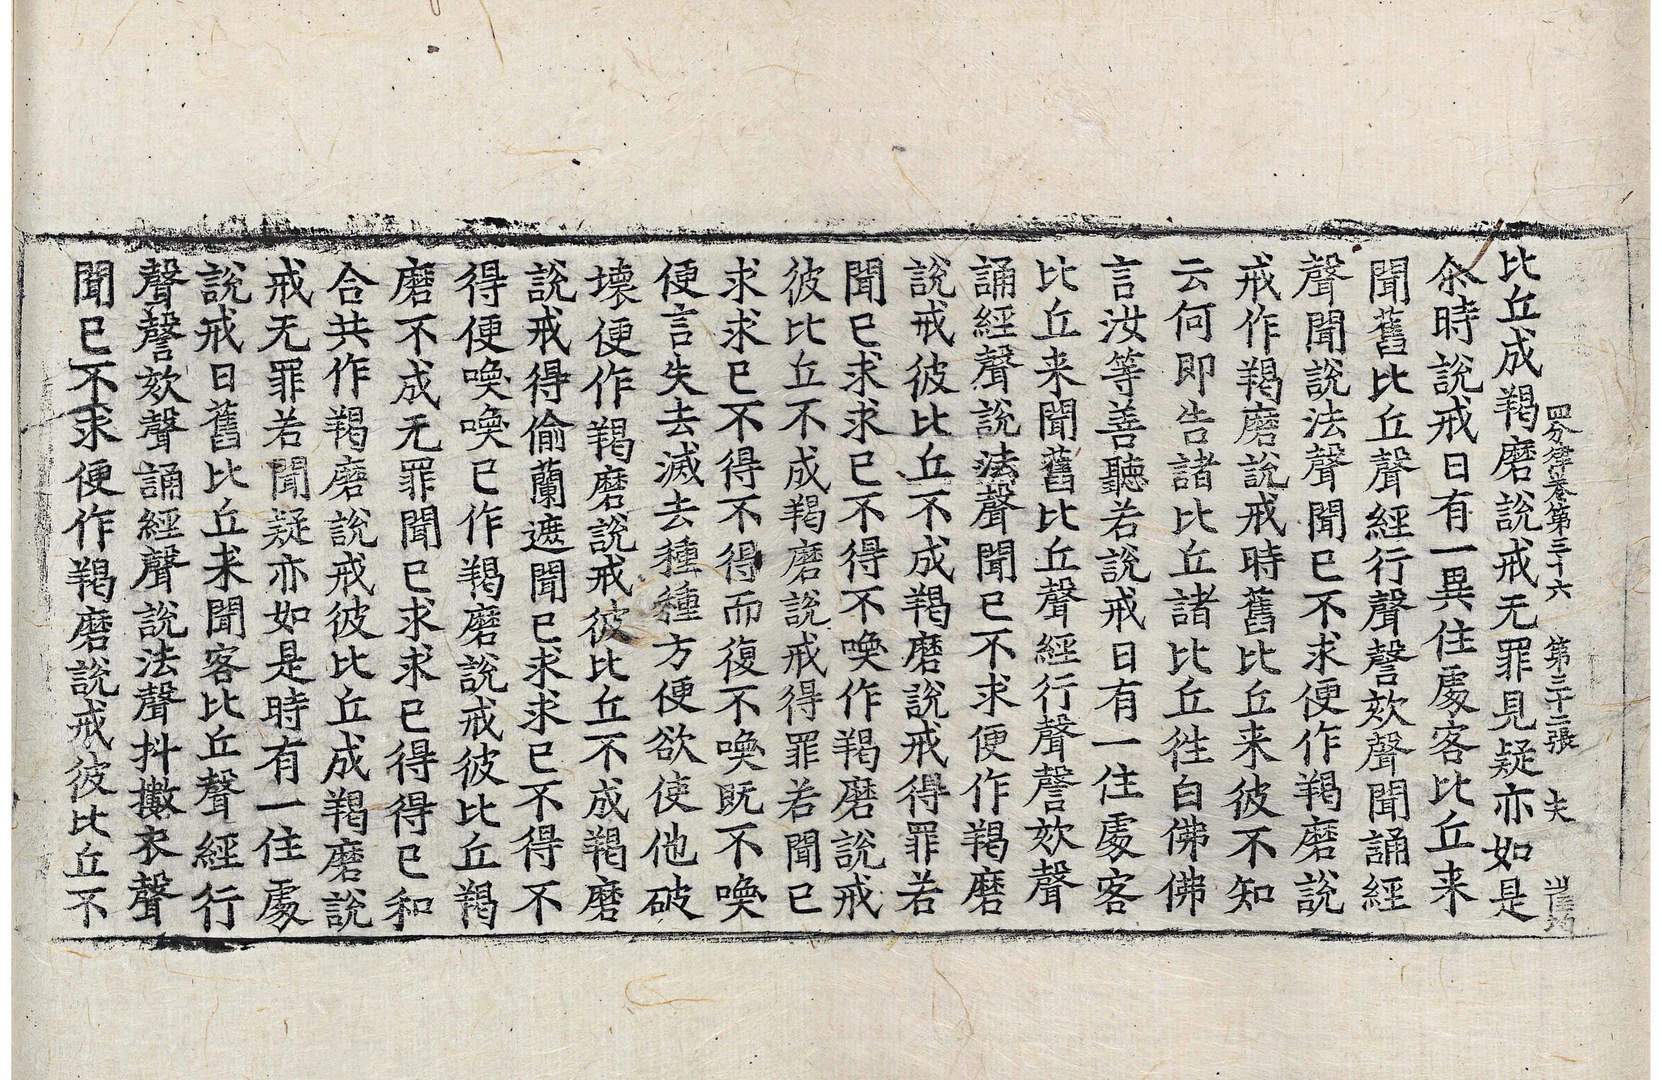 比丘成羯磨說戒无罪見疑亦如是
四分律卷第三十六　第三十二張　夫
尒時說戒日有一異住處客比丘来
聞舊比丘聲經行聲謦欬聲聞誦經
聲聞說法聲聞已不求便作羯磨說
戒作羯磨說戒時舊比丘来彼不知
云何即告諸比丘諸比丘徃白佛佛
言汝等善聽若說戒日有一住處客
比丘来聞舊比丘聲經行聲謦欬聲
誦經聲說法聲聞已不求便作羯磨
說戒彼比丘不成羯磨說戒得罪若
聞已求求已不得不喚作羯磨說戒
彼比丘不成羯磨說戒得罪若聞已
求求已不得不得而復不喚既不喚
便言失去滅去種種方便欲使他破
壞便作羯磨說戒彼比丘不成羯磨
說戒得偷蘭遮聞已求求已不得不
得便喚喚已作羯磨說戒彼比丘羯
磨不成无罪聞已求求已得得已和
合共作羯磨說戒彼比丘成羯磨說
戒无罪若聞疑亦如是時有一住處
說戒日舊比丘来聞客比丘聲經行
聲謦欬聲誦經聲說法聲抖擻衣聲
聞已不求便作羯磨說戒彼比丘不